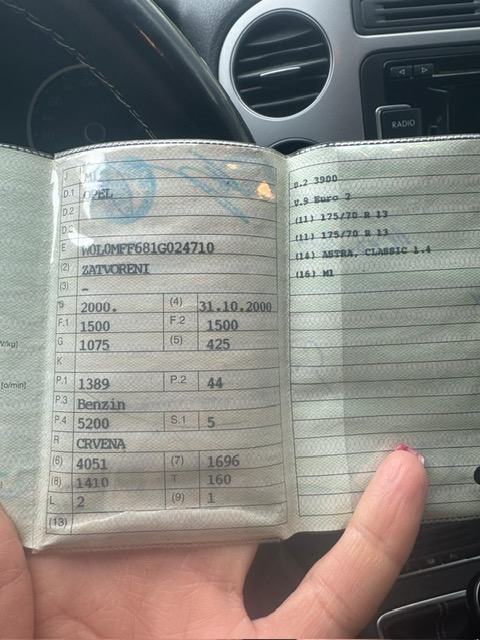 RADIO
J M1
D.1 OPEL
D.2
D.3
E W0L0MFF681G024710
(2) ZATVORENI
(3) -
9 2000. (4) 31.10.2000
F.1 1500 F.2 1500
G 1075 (5) 425
K
P.1 1389 P.2 44
P.3 Benzin
P.4 5200 S.1 5
R CRVENA
(6) 4051 (7) 1696
(8) 1410 T 160
L 2 (9) 1
(13)
U.2 3900
V.9 Euro 2
(11) 175/70 R 13
(11) 175/70 R 13
(14) ASTRA, CLASSIC 1.4
(16) M1
/kg]
[o/min]